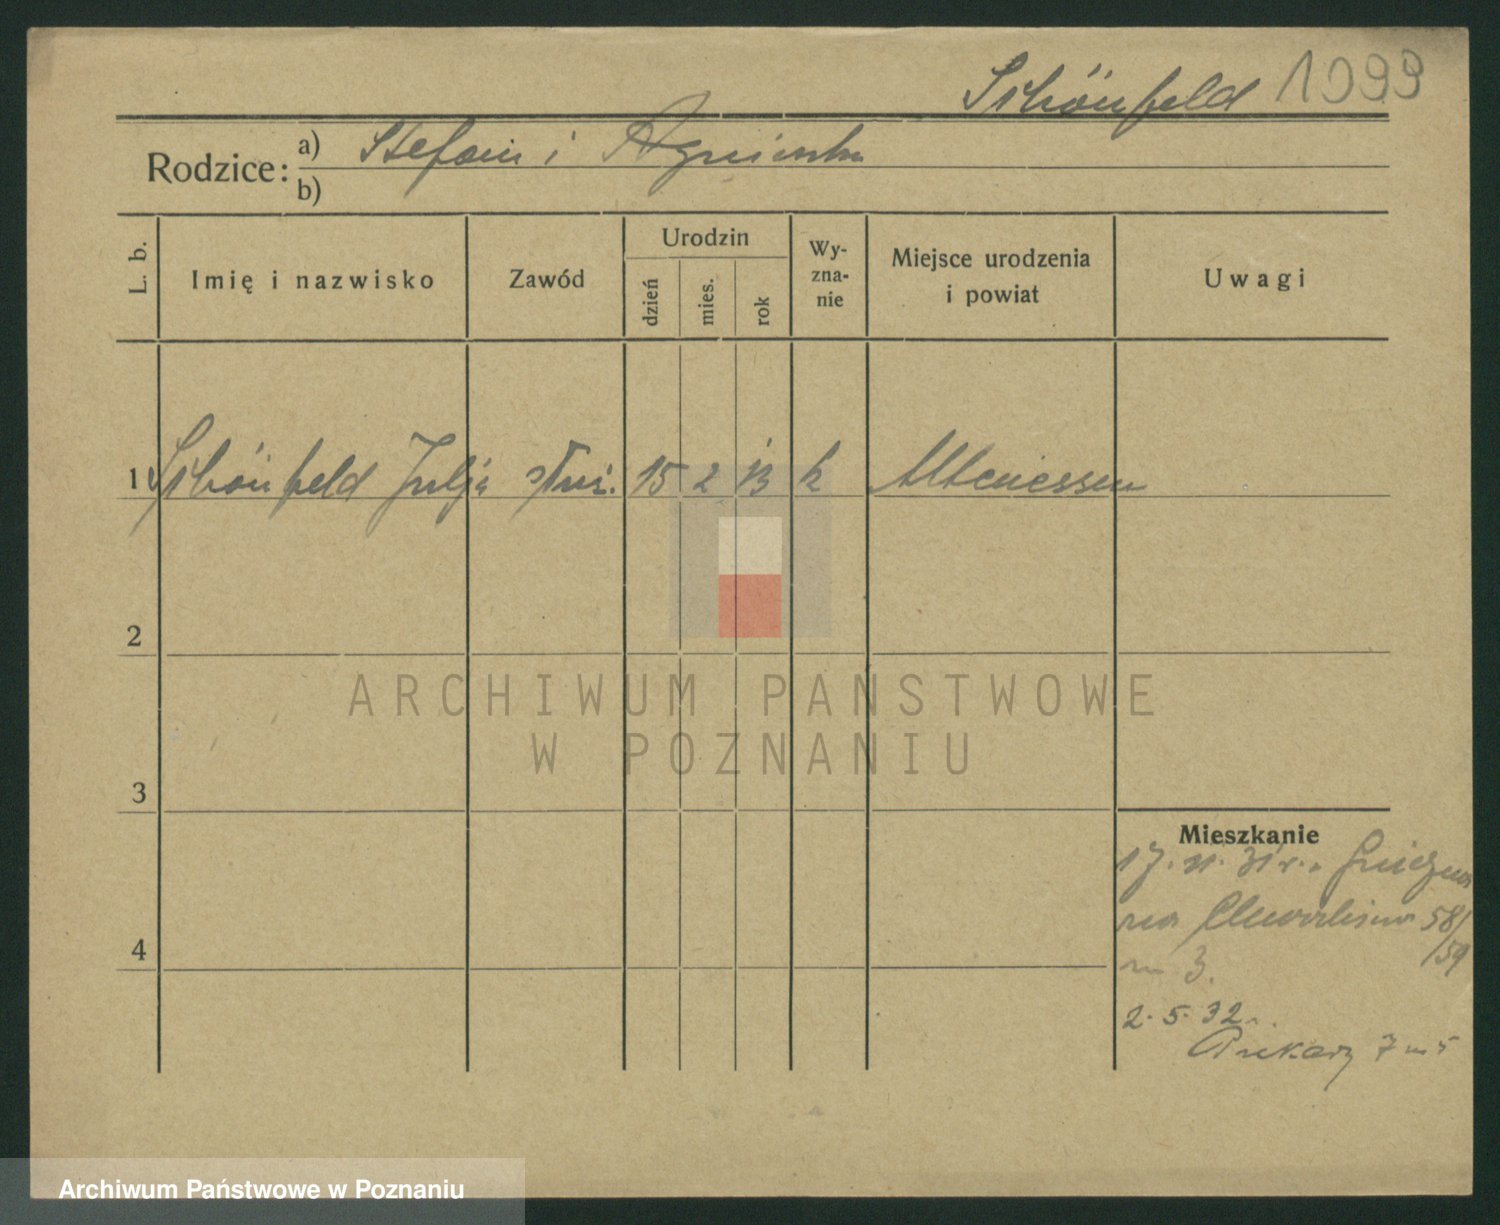 Schönfeld 1099
Rodzice: a) Stefan i Agnieszka
b)
L. b. Imię i nazwisko Zawód Urodzin dzień mies. rok Wy-zna-nie Miejsce urodzenia i powiat Uwagi
1 Schönfeld Julja służ. 15 2 13 k Altenessen
2
ARCHIWUM PAŃSTWOWE
W POZNANIU
3
Mieszkanie
17. 31 r.
58/
59
4
m 3.
2. 5. 32 r.
Piekary 7 m 5
Archiwum Państwowe w Poznaniu